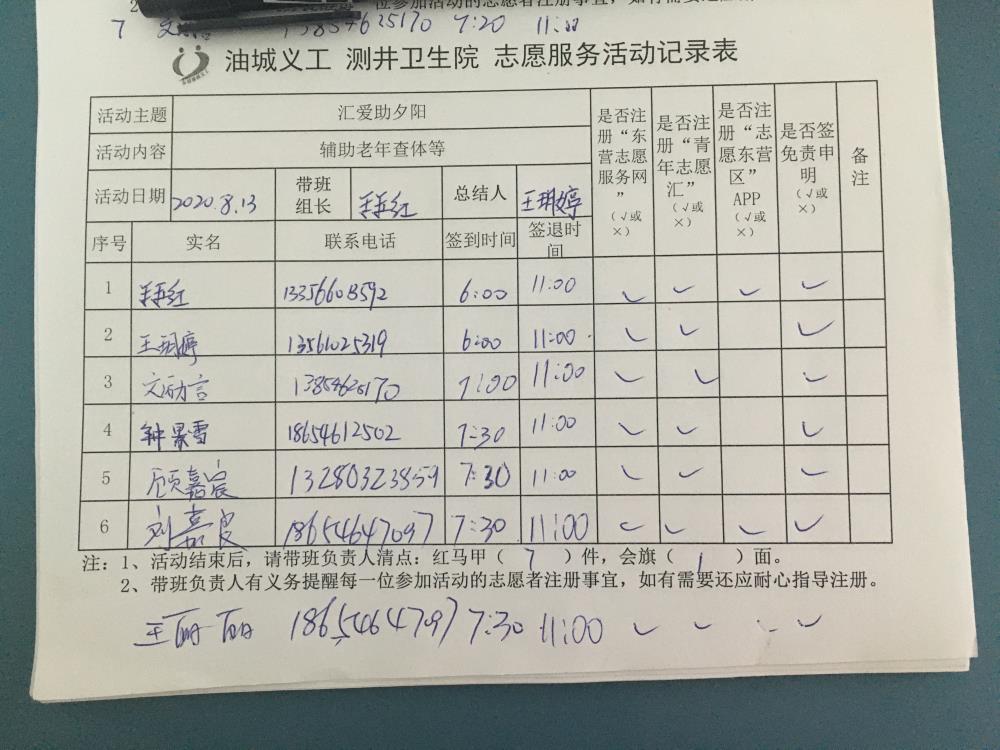 7 13854625170 7:20 11:00
油城义工 测井卫生院 志愿服务活动记录表
活动主题 汇爱助夕阳 是否注册“东营志愿服务网”（√或×） 是否注册“青年志愿汇”（√或×） 是否注册“志愿东营区”APP（√或×） 是否签免责申明（√或×） 备注
活动内容 辅助老年查体等
活动日期 2020.8.13 带班组长 总结人 王玥婷
序号 实名 联系电话 签到时间 签退时间
1 6:00 11:00 ✓ ✓ ✓ ✓
2 王玥婷 13561025319 6:00 11:00 ✓ ✓ ✓
3 13854625170 7:00 11:00 ✓ ✓ ✓
4 钟景雪 18654612502 7:30 11:00 ✓ ✓ ✓
5 顾嘉宸 13280323859 7:30 11:00 ✓ ✓ ✓
6 刘嘉良 18654647097 7:30 11:00 ✓ ✓ ✓ ✓
注：1、活动结束后，请带班负责人清点：红马甲（ 7 ）件，会旗（ 1 ）面。
2、带班负责人有义务提醒每一位参加活动的志愿者注册事宜，如有需要还应耐心指导注册。
王丽丽 18654647097 7:30 11:00 ✓ ✓ ✓ ✓